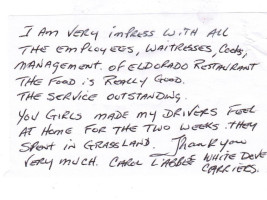 I AM VERY IMPRESS WITH ALL
THE EMPLOYEES, WAITRESSES, COOKS,
MANAGEMENT. OF ELDORADO RESTAURANT
THE FOOD IS REALLY GOOD.
THE SERVICE OUTSTANDING.
YOU GIRLS MADE MY DRIVERS FEEL
AT HOME FOR THE TWO WEEKS. THEY
SPENT IN GRASSLAND. Thank you
VERY MUCH. CAROL L'ABBÉE WHITE DOVE
CARRIERS.